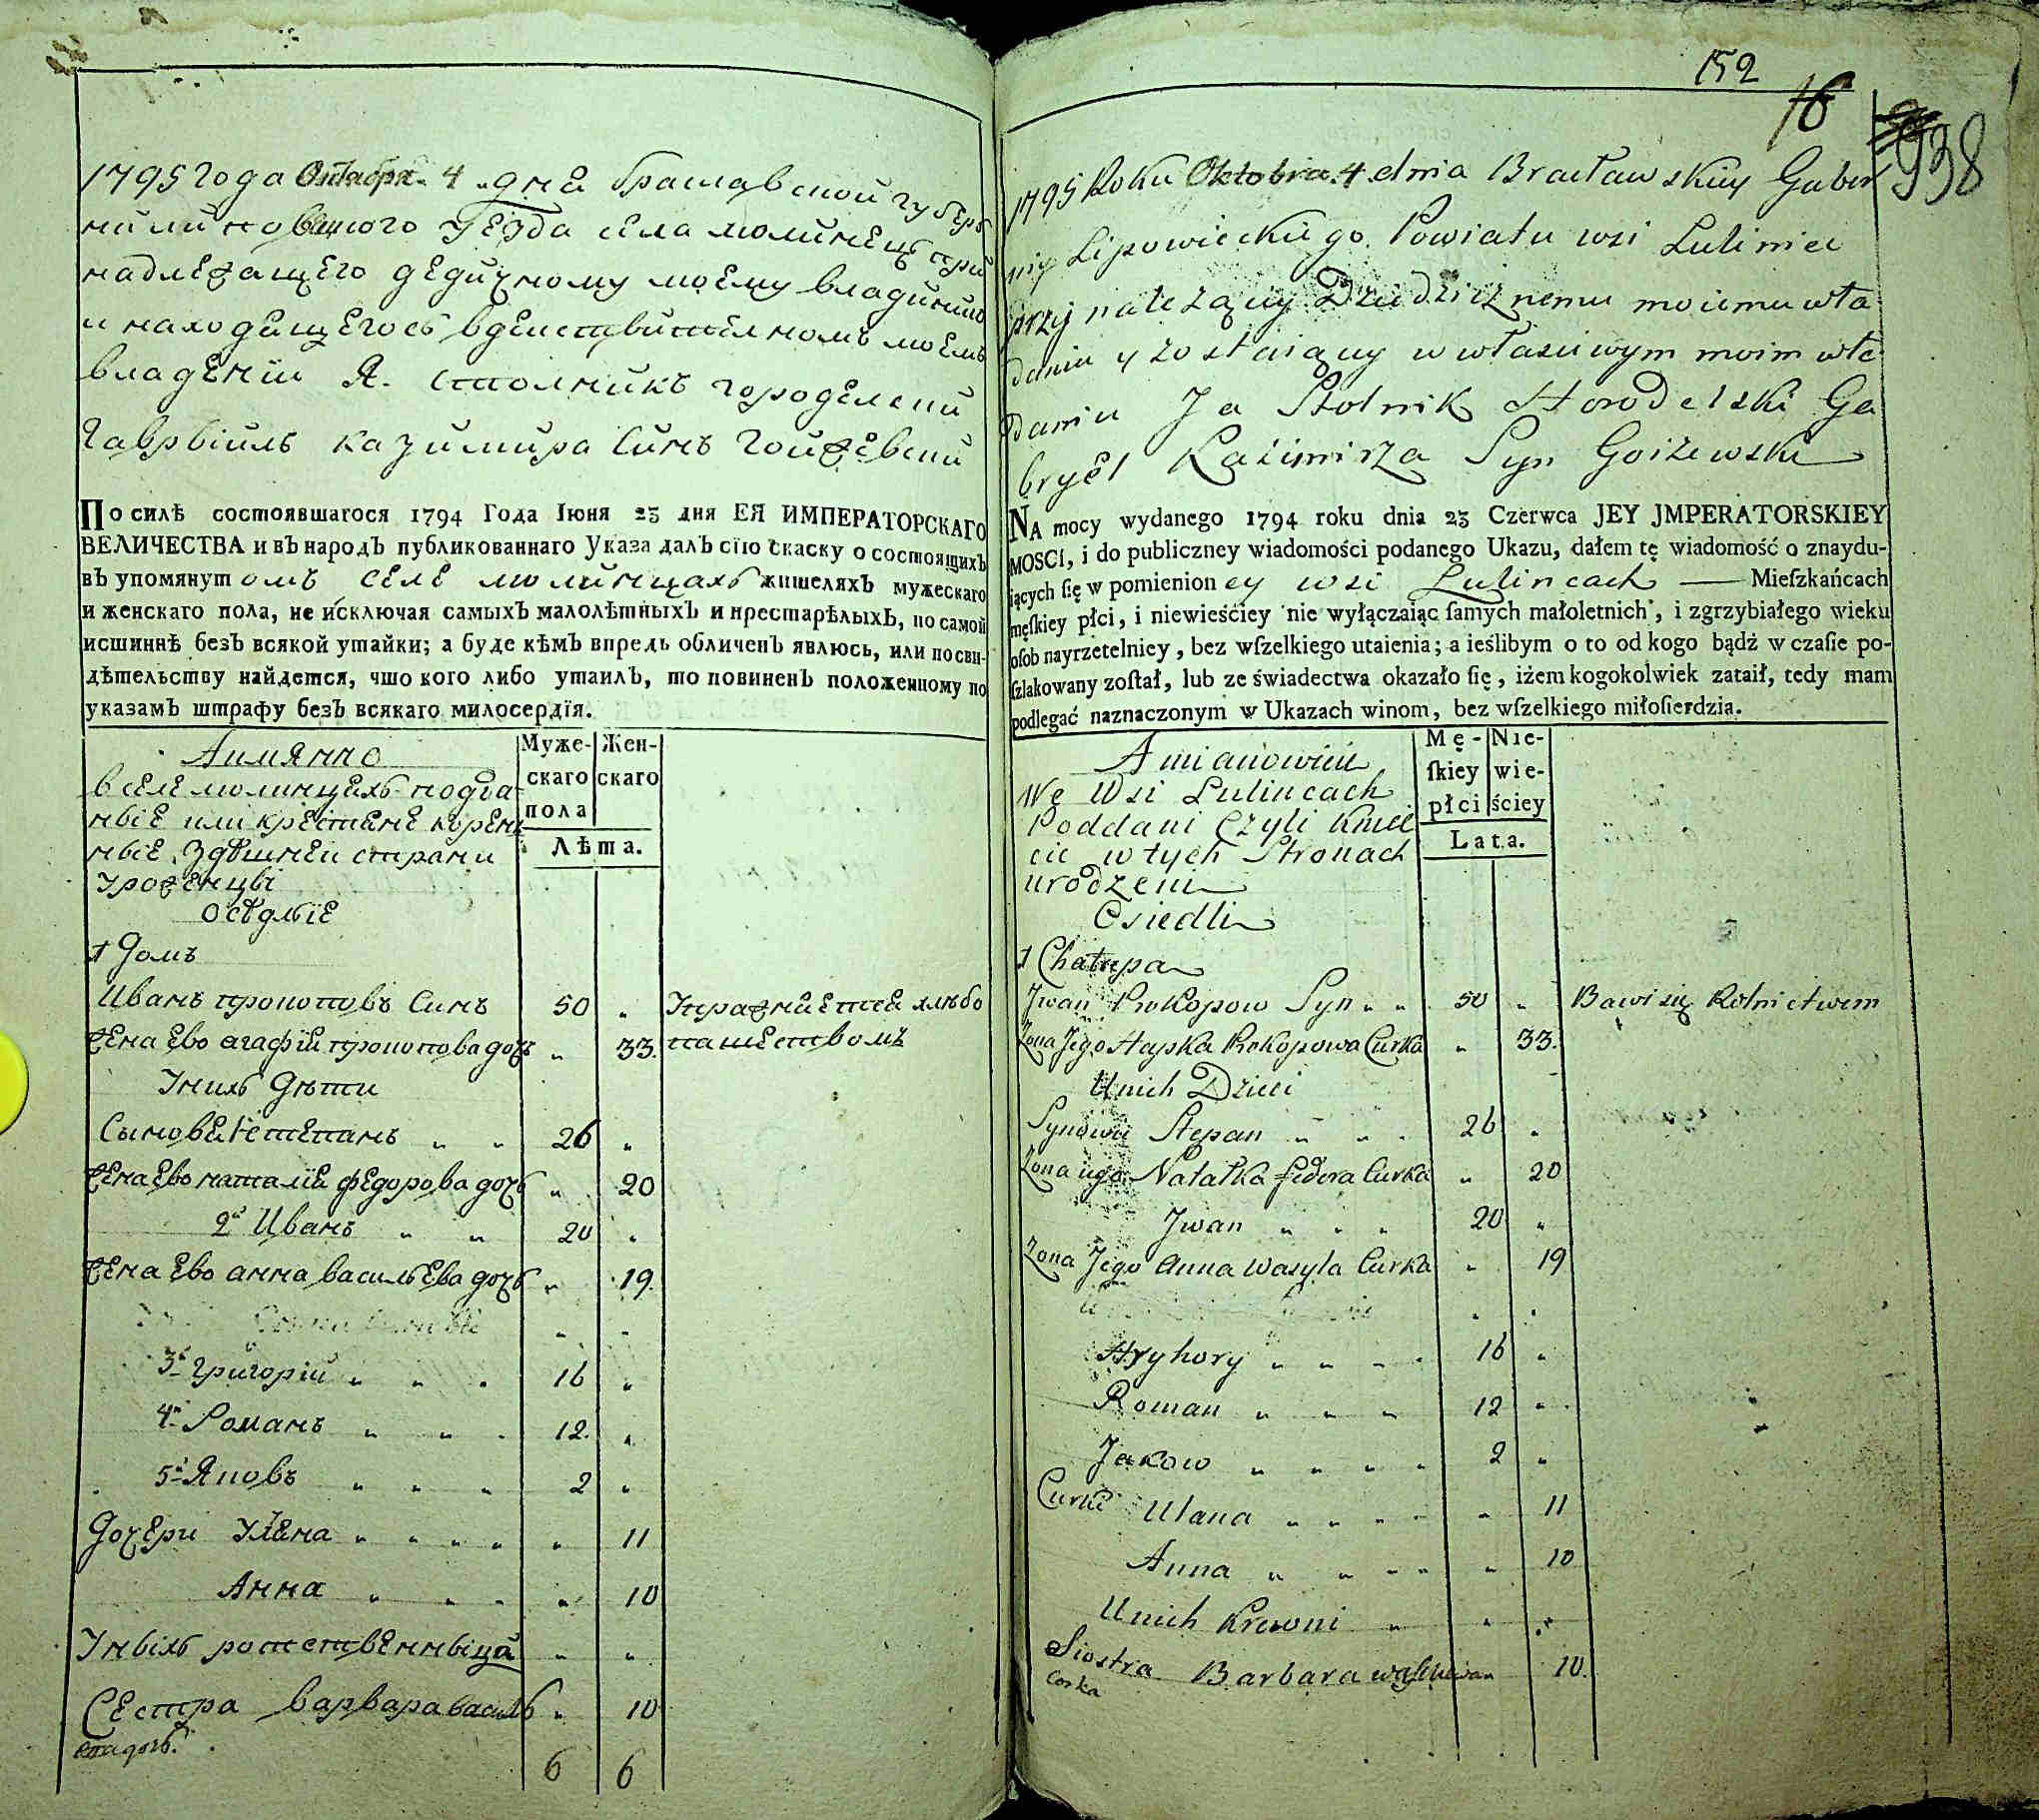 1795 года Октября 4 дня браславской губер
нии липовецкого уезда села люлинецъ при
надлежащего дедичному моему владению
и находящегось вдействителномъ моемъ
владении Я. столникъ городелский
Гаврыилъ казимира Синъ Гоижевский
По силѣ состоявшагося 1794 Года Іюня 23 дня ЕЯ ИМПЕРАТОРСКАГО
ВЕЛИЧЕСТВА и въ народъ публикованнаго Указа далъ сїю скаску о состоящихъ
въ упомянутомъ селе люлинцахъ жителяхъ мужескаго
и женскаго пола, не исключая самыхъ малолѣтныхъ и престарѣлыхъ, по самой
истиннѣ безъ всякой утайки; а буде кѣмъ впредь обличенъ явлюсь, или по сви-
дѣтельству найдется, что кого либо утаилъ, то повиненъ положенному по
указамъ штрафу безъ всякаго милосердїя.
Аимянно
Муже-скаго пола Жен-скаго
Лѣта.
вселе люлинцахъ подда-
ные или крестяне корен
ные здешней страни
уроженцы
Осѣдлые
1 Домъ
Иванъ прокоповъ Синъ 50 „ Упражняется хлебо
жена ево агафия прокопова дочь „ 33. пашеством
Униx дети
Сынове 1й степанъ „ „ 26 „
жена ево наталие федорова дочь „ 20
2й Иванъ „ „ 20 „
жена ево анна васильева дочь „ 19.
3й григорий „ „ „ 16 „
4й Романъ „ „ „ 12. „
5й Яковъ „ „ „ 2 „
Дочери Улиана „ „ „ „ „ 11
Анна „ „ „ „ 10
Уныхъ родственныца „ „
Сестра варвара василь „ 10
ева дочь.
6 6
152
16
938
1795 Roku Oktobra 4 dnia Bracławskiey Guber
nij Lipowieckiego Powiatu wsi Luliniec
przynależącey Dziedzicznemu moiemu wła
daniu y zostaiącey w własciwym moim wła
daniu Ja Stolnik Horodelski Ga
bryel Kazimirza Syn Goizewski
NA mocy wydanego 1794 roku dnia 23 Czerwca JEY JMPERATORSKIEY
MOSCI, i do publiczney wiadomości podanego Ukazu, dałem tę wiadomość o znaydu-
iących ſię w pomienioney wsi Lulincach — Mieſzkańcach
męſkiey płci, i niewieściey nie wyłączaiąc ſamych małoletnich, i zgrzybiałego wieku
oſob nayrzetelniey, bez wſzelkiego utaienia; a ieślibym o to od kogo bądź w czaſie po-
ſzlakowany zoſtał, lub ze świadectwa okazało ſię, iżem kogokolwiek zataił, tedy mam
podlegać naznaczonym w Ukazach winom, bez wſzelkiego miłoſierdzia.
Amianowicie
Mę-ſkiey płci Nie-wie-ściey
Lata.
We Wsi Lulincach
Poddani Czyli Kmie
cie w tych Stronach
urodzeni
Osiedli
1 Chałupa
Jwan Prokopow Syn „ „ 50 „ Bawi się Rolnictwem
Zona Jego Hapka Prokopowa Curka „ 33.
Unich Dzieci
Synowie Stepan „ „ „ 26 „
Zona iego Natałka fedora Curka „ 20
Jwan „ „ „ 20 „
Zona Jego Anna Wasyla Curka „ 19
Hryhory „ „ „ „ 16 „
Roman „ „ „ 12 „
Jakow „ „ „ „ 2 „
Curki Ulana „ „ „ „ „ 11
Anna „ „ „ „ „ 10
Unich Krewni „ „ „
Siostra Barbara „ 10.
Corka